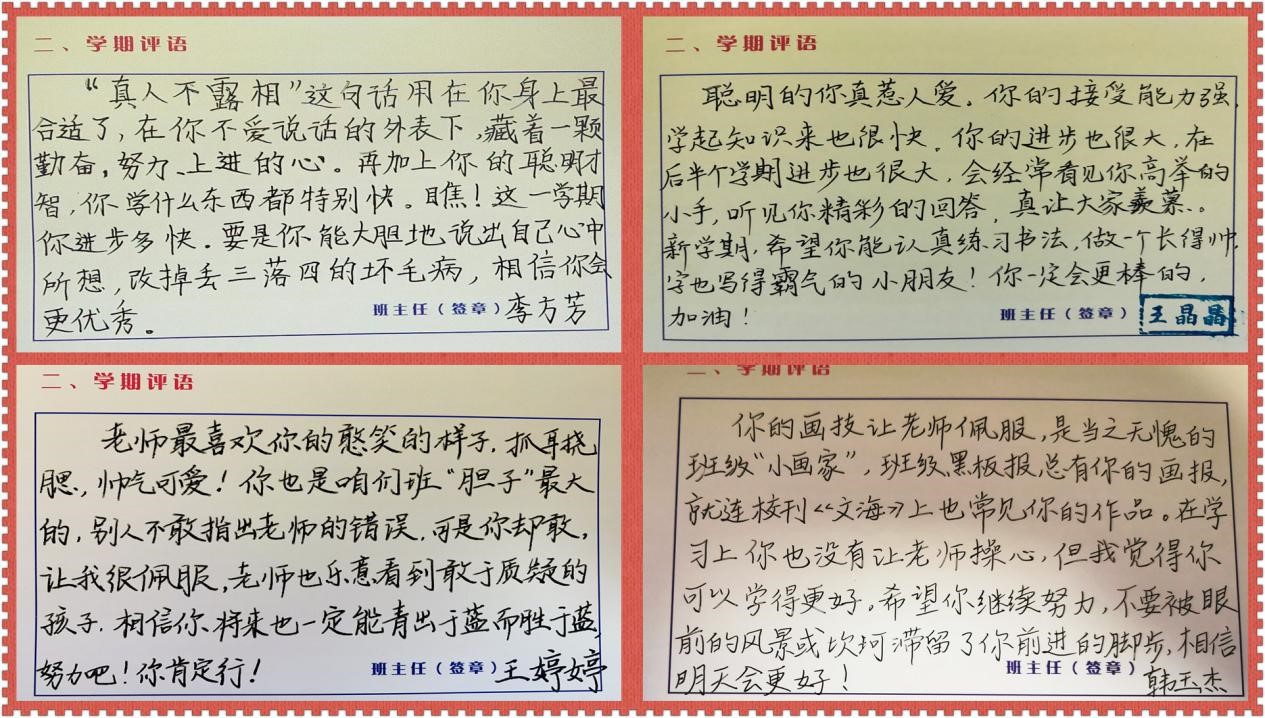 二、学期评语
“真人不露相”这句话用在你身上最
合适了，在你不爱说话的外表下，藏着一颗
勤奋，努力、上进的心。再加上你的聪明才
智，你学什么东西都特别快。瞧！这一学期
你进步多快。要是你能大胆地说出自己心中
所想，改掉丢三落四的坏毛病，相信你会
更优秀。
班主任（签章）李方芳
二、学期评语
聪明的你真惹人爱。你的接受能力强，
学起知识来也很快。你的进步也很大，在
后半个学期进步也很大，会经常看见你高举的
小手，听见你精彩的回答，真让大家羡慕。
新学期，希望你能认真练习书法，做一个长得帅，
字也写得霸气的小朋友！你一定会更棒的，
加油！
班主任（签章）王晶晶
二、学期评语
老师最喜欢你的憨笑的样子，抓耳挠
腮，帅气可爱！你也是咱们班“胆子”最大
的，别人不敢指出老师的错误，可是你却敢，
让我很佩服，老师也乐意看到敢于质疑的
孩子，相信你将来也一定能青出于蓝而胜于蓝，
努力吧！你肯定行！
班主任（签章）王婷婷
二、学期评语
你的画技让老师佩服，是当之无愧的
班级“小画家”，班级黑板报总有你的画报，
就连校刊《文海》上也常见你的作品。在学
习上你也没有让老师操心，但我觉得你
可以学得更好。希望你继续努力，不要被眼
前的风景或坎坷滞留了你前进的脚步，相信
明天会更好！
班主任（签章）韩玉杰